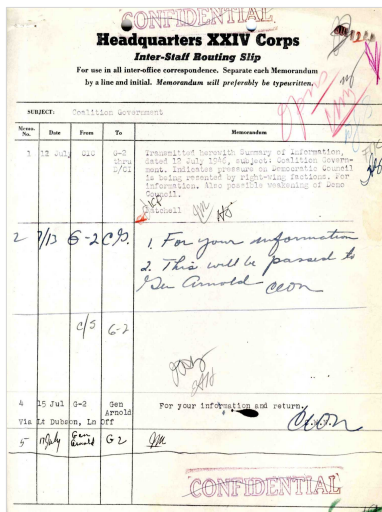 CONFIDENTIAL
Headquarters XXIV Corps
Inter-Staff Routing Slip
For use in all inter-office correspondence. Separate each Memorandum
by a line and initial. Memorandum will preferably be typewritten.
SUBJECT: Coalition Government
Memo. No. Date From To Memorandum
1 12 July CIC G-2 thru D/CI
Transmitted herewith Summary of Information,
dated 12 July 1946, subject: Coalition Govern-
ment. Indicates pressure on Democratic Council
is being resented by right-wing factions. For
information. Also possible weakening of Demo
Council.
2 7/13 G-2 C/S 1. For your information
2. This will be passed to
Gen Arnold
C/S G-2
4 15 Jul G-2 Gen Arnold For your information and return.
Via Lt Dubson, Ln Off
5 17 July Gen Arnold G2
CONFIDENTIAL